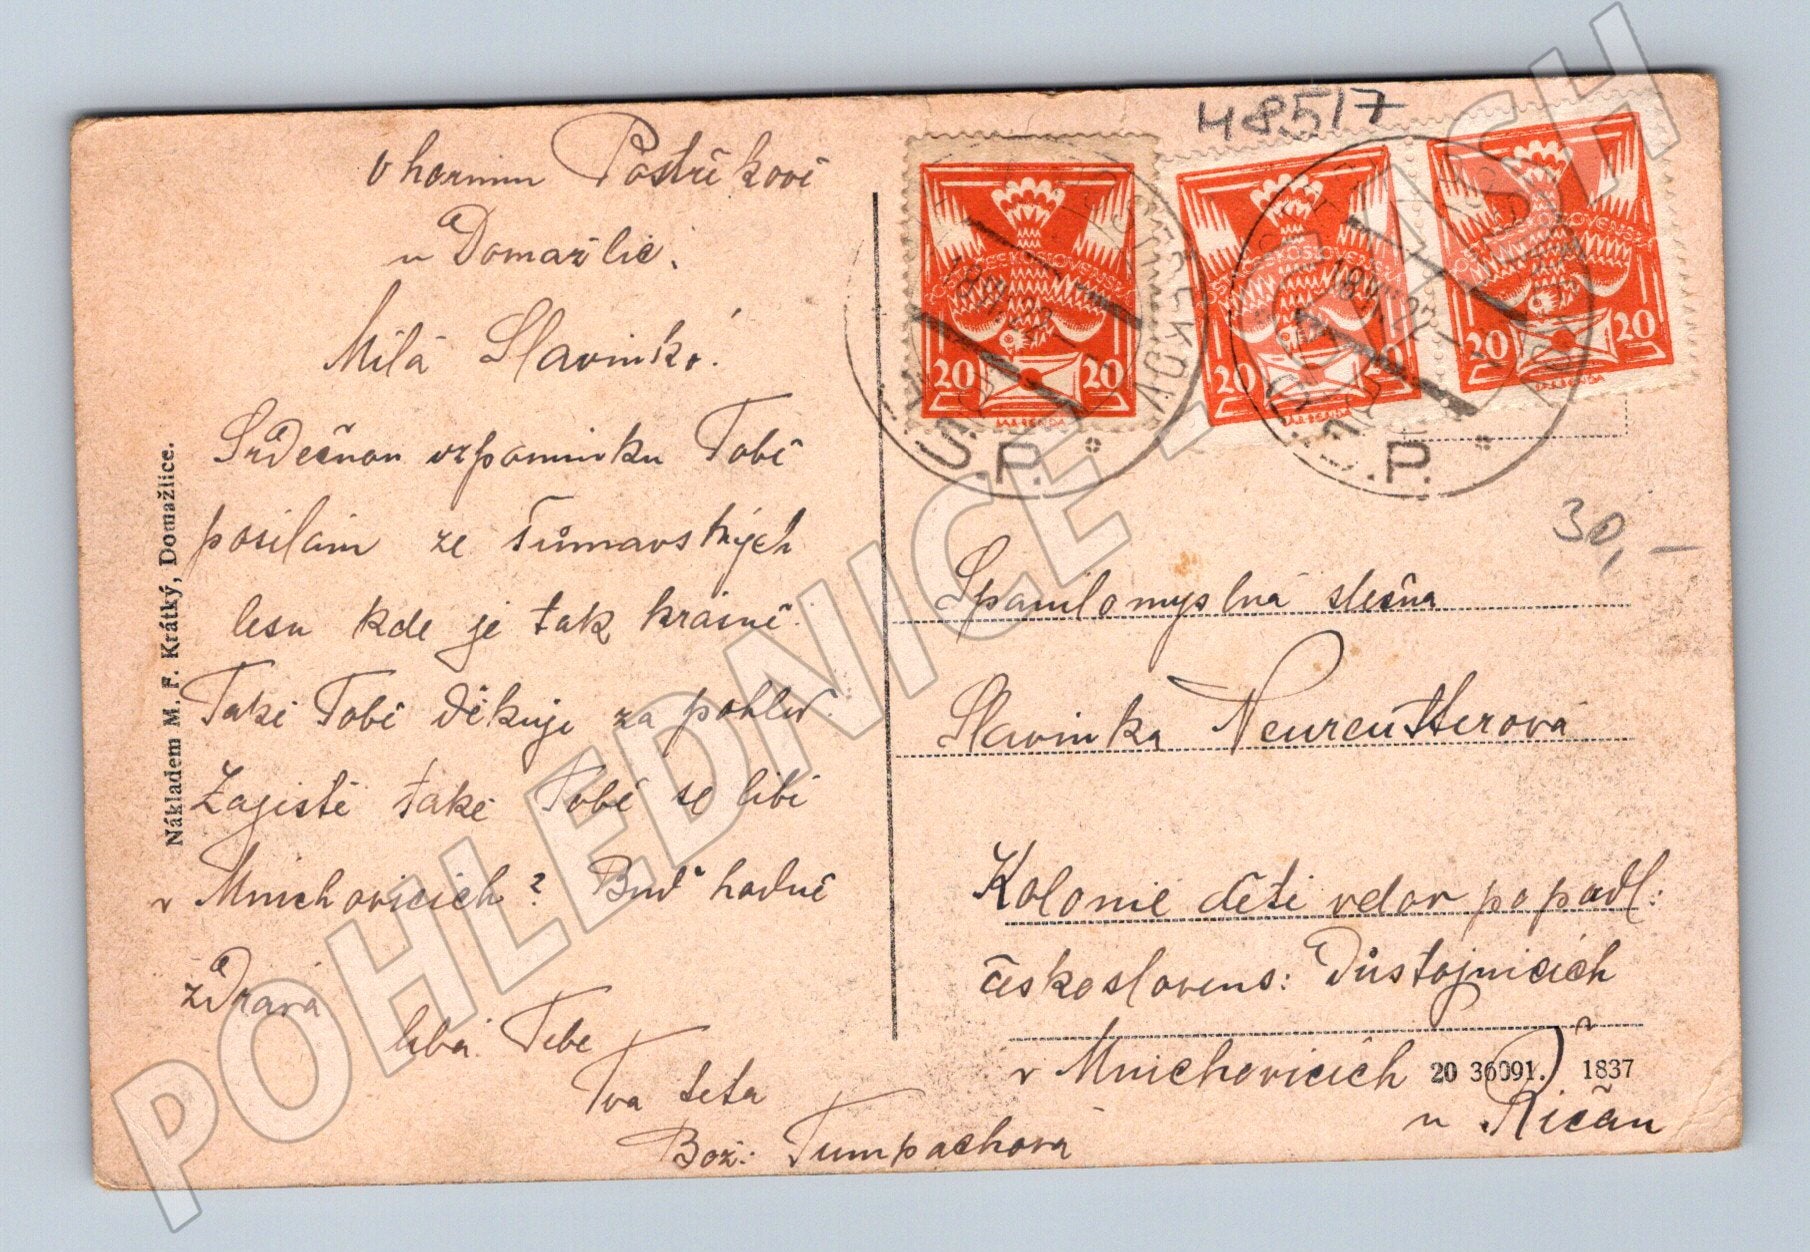 v horním Postřěkově
u Domažlic.
Milá Slavinko!
Srdečnou vzpomínku Tobě
posílám ze šůmavských
lesu kde je tak krásně.
Také Tobě děkuji za pohled.
Zajistě také Tobě se líbí
v Mnichovicích? Buď hodně
zdráva
líbá Tebe
Tva teta
Bož: Tumpachová
Nákladem M. F. Krátký, Domažlice.
48517
20 20
20 20
20 20
18.VII.22
Č.S.P.
.P.
30,-
Spanilomyslná slečna
Slavinka Neureutterová
Kolonie dětí vdov po padl:
českoslovens: Důstojnicích
v Mnichovicích
20 36091. 1837
u Říčan
POHLEDNICE